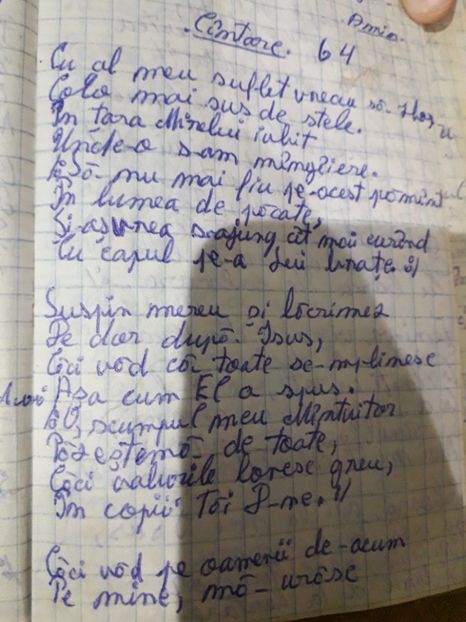 Amin.
Cîntare. 64
Cu al meu suflet vreau să-zbor,
Colo mai sus de stele.
În țara Mirelui iubit
Unde-o s-am mîngîiere.
Să nu mai fiu pe-acest pămînt
În lumea de păcate,
Și-aș vrea s-ajung cît mai curînd
Cu capul pe-a Lui brațe.
Suspin mereu și lăcrimez
De dor după Isus,
Căci văd că toate se-mplinesc
Așa cum El a spus.
O, scumpul meu Mîntuitor
Păzește-mă de toate,
Căci valurile lovesc greu,
În copiii Tăi D-ne.
Căci văd pe oamenii de-acum
Pe mine, mă-urăsc